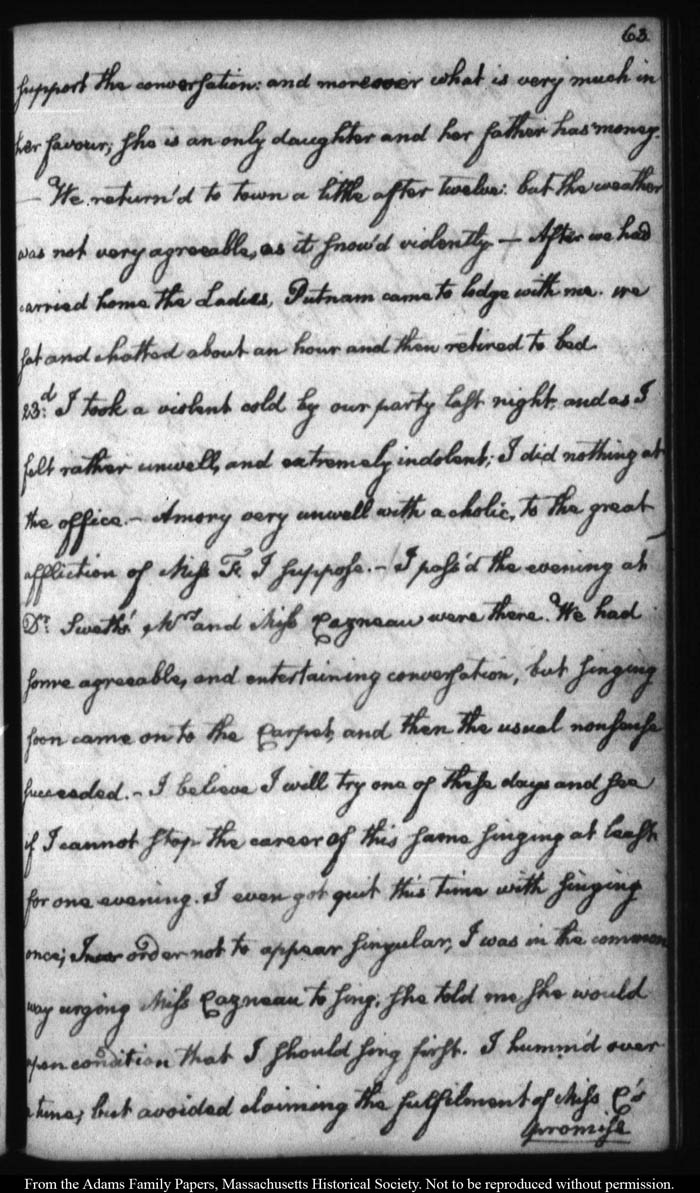 63
support the conversation: and moreover what is very much in
her favour; she is an only daughter and her father has money.
— We return'd to town a little after twelve: but the weather
was not very agreeable, as it snow'd violently — After we had
carried home the Ladies, Putnam came to lodge with me. we
sat and chatted about an hour and then retired to bed.
23.d I took a violent cold by our party last night, and as I
felt rather unwell, and extremely indolent; I did nothing at
the office. — Amory very unwell with a cholic, to the great
affliction of Miss F. I suppose. — I pass'd the evening at
Dr. Swett's. Mrs and Miss Cazneau were there. We had
some agreeable, and entertaining conversation, but singing
soon came on to the Carpet, and then the usual nonsense
succeeded. — I believe I will try one of these days and see
if I cannot stop the career of this same singing at least
for one evening. I even got quit this time with singing
once; In order not to appear singular, I was in the common
way urging Miss Cazneau to sing; she told me she would
upon condition that I should sing first. I humm'd over
a tune, but avoided claiming the fulfilment of Miss C's
promise
From the Adams Family Papers, Massachusetts Historical Society. Not to be reproduced without permission.